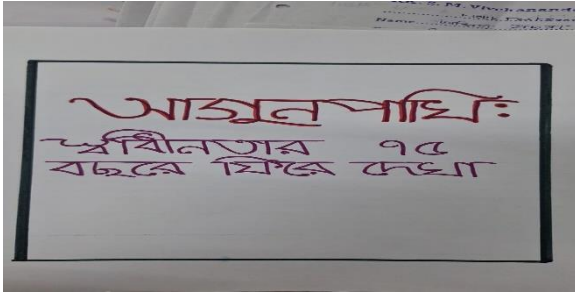 আগুনপাখিঃ
স্বাধীনতার ৭৫
বছরে ফিরে দেখা